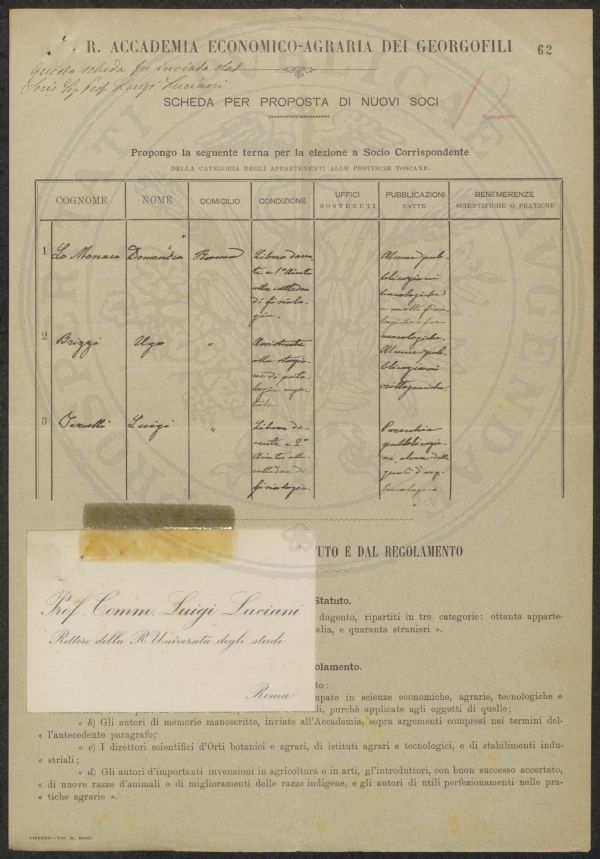 R. ACCADEMIA ECONOMICO-AGRARIA DEI GEORGOFILI
62
Questa scheda fu inviata dal
Socio Sig. Prof. Luigi Luciani
12
SCHEDA PER PROPOSTA DI NUOVI SOCI
Propongo la seguente terna per la elezione a Socio Corrispondente
DELLA CATEGORIA DEGLI APPARTENENTI ALLE PROVINCIE TOSCANE.
COGNOME NOME DOMICILIO CONDIZIONE UFFICI SOSTENUTI PUBBLICAZIONI FATTE BENEMERENZE SCIENTIFICHE O PRATICHE
1 Lo Monaco Domenico Roma Libero docen-
te e 1º Aiuto
alla cattedra
di fisiolo-
gia.
Alcune pub-
blicazioni
bacologiche
e molte fisio-
2 Brizzi Ugo " Assistente
alla stazio-
ne di pato-
logia vege-
tale.
Alcune pub-
blicazioni
crittogamiche
3 Luigi " Libero do-
cente e 2º
Aiuto alla
cattedra di
fisiologia.
Parecchie
pubblicazio-
ni, alcune delle
quali d'arg.
bacologico
TUTO E DAL REGOLAMENTO
Prof. Comm. Luigi Luciani
Rettore della R. Università degli studi
Roma
Statuto.
dugento, ripartiti in tre categorie: ottanta apparte-
alia, e quaranta stranieri ».
olamento.
to:
mpate in scienze economiche, agrarie, tecnologiche e
li, purchè applicate agli oggetti di quelle;
« b) Gli autori di memorie manoscritte, inviate all'Accademia, sopra argomenti compresi nei termini del-
« l'antecedente paragrafo;
« c) I direttori scientifici d'Orti botanici e agrari, di istituti agrari e tecnologici, e di stabilimenti indu-
« striali;
« d) Gli autori d'importanti invenzioni in agricoltura o in arti, gl'introduttori, con buon successo accertato,
« di nuove razze d'animali o di miglioramenti delle razze indigene, e gli autori di utili perfezionamenti nelle pra-
« tiche agrarie ».
FIRENZE—TIP. M. RICCI